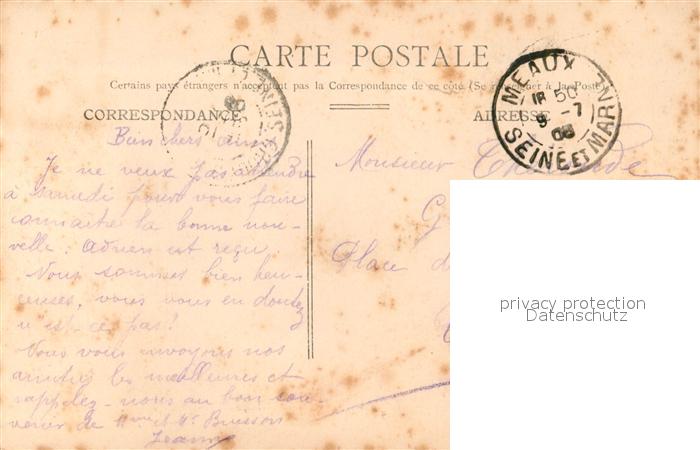 CARTE POSTALE
Certains pays étrangers n'acceptent pas la Correspondance de ce côté (Se renseigner à la Poste)
CORRESPONDANCE
ADRESSE
MEAUX
18 50
9 -7
08
SEINE ET MARNE
Bien chers amis
Je ne veux pas attendre
à samedi pour vous faire
connaître la bonne nou-
velle : Adrien est reçu
Nous sommes bien heu-
reuses, vous vous en doutez
n'est-ce pas ?
Nous vous envoyons nos
amitiés les meilleures et
rappelez-nous au bon sou-
venir de Mme et Mr Buisson
Jeanne
Monsieur
G
Place d
privacy protection
Datenschutz